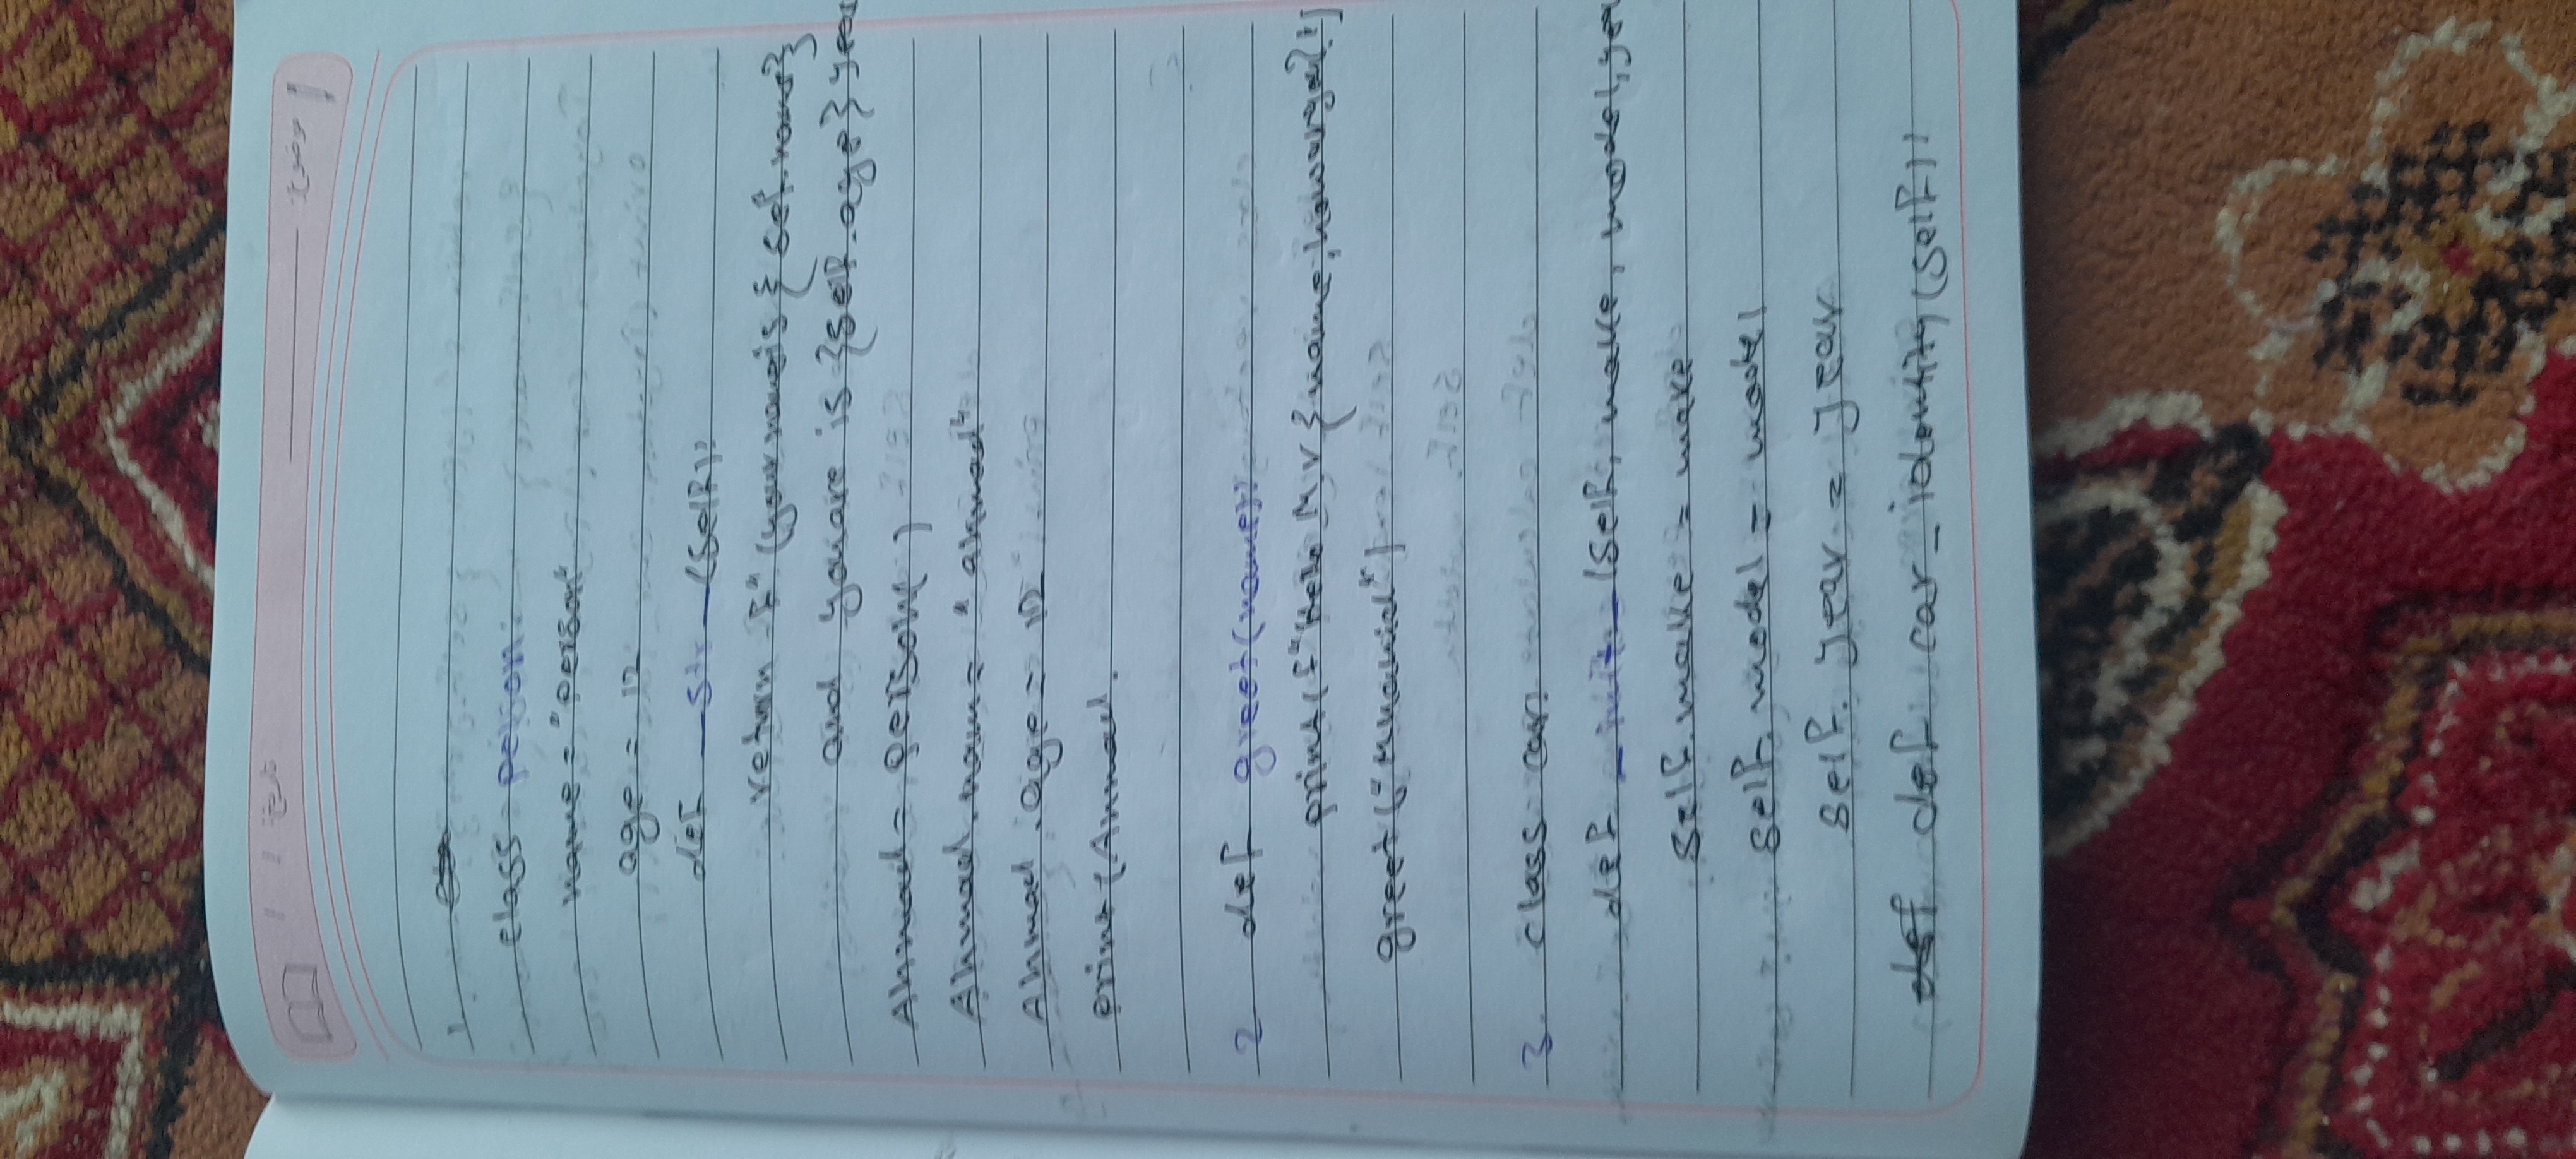 موضوع: تاریخ: / /
1.
class person:
name = "person"
age = 12
def __str__(self):
return f"(your name is {self.name}
and you are is {self.age} year
Ahmad = person()
Ahmad.nam = "ahmad"
Ahmad.age = 12
print(Ahmad.
2 def greet(name):
print(f"Hello Mr {name, how are you?!
greet("
3. class car:
def __init__(self, make, model, yea
self.make = make
self.model = model
self.year = year
def car_identity(self):